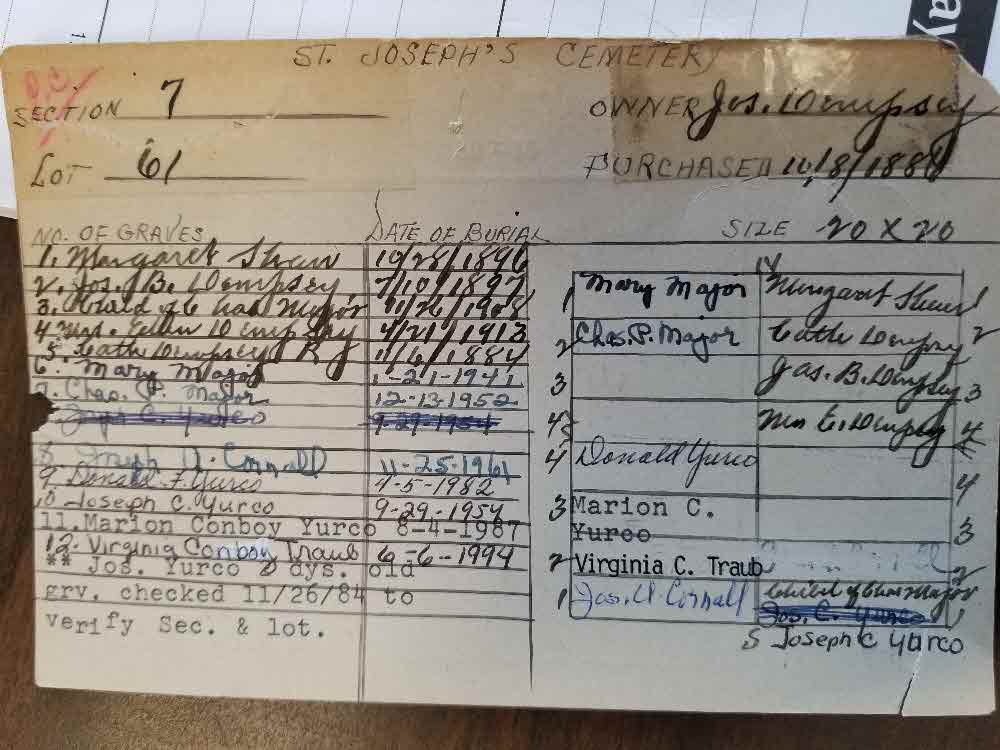 ay
ST. JOSEPH'S CEMETERY
O.C.
SECTION 7
OWNER Jos. Dempsey
LOT 61
PURCHASED 10/8/188
NO. OF GRAVES DATE OF BURIAL
SIZE 20 X 20
1. Margaret Shaw 10/28/1896
2. Jos. B. Dempsey 7/10/1897
3. Child of Chas Major 11/26/1908
4 Mrs. Ellen Dempsey 4/21/1913
5. Cath Dempsey 11/6/1884
6. Mary Major 1-21-1941
7. Chas. P. Major 12-13-1952
Joseph C. Yurco 9-29-1954
8 Joseph A. Cornall 11-25-1961
9 Donald F. Yurco 4-5-1982
10 Joseph C. Yurco 9-29-1954
11. Marion Conboy Yurco 8-4-1987
12. Virginia Conboy Traub 6-6-1994
** Jos. Yurco 2 dys. old
grv. checked 11/26/84 to
verify Sec. & lot.
N
1 Mary Major Margaret Shaw 1
2 Chas. P. Major Cath Dempsey 2
3 Jas. B. Dempsey 3
4 Mrs E. Dempsey 4
4 Donald Yurco 4
3 Marion C. Yurco 3
2 Virginia C. Traub 2
1 Jos. A. Cornall Child of Chas Major 1
Jos. C. Yurco
S Joseph C Yurco